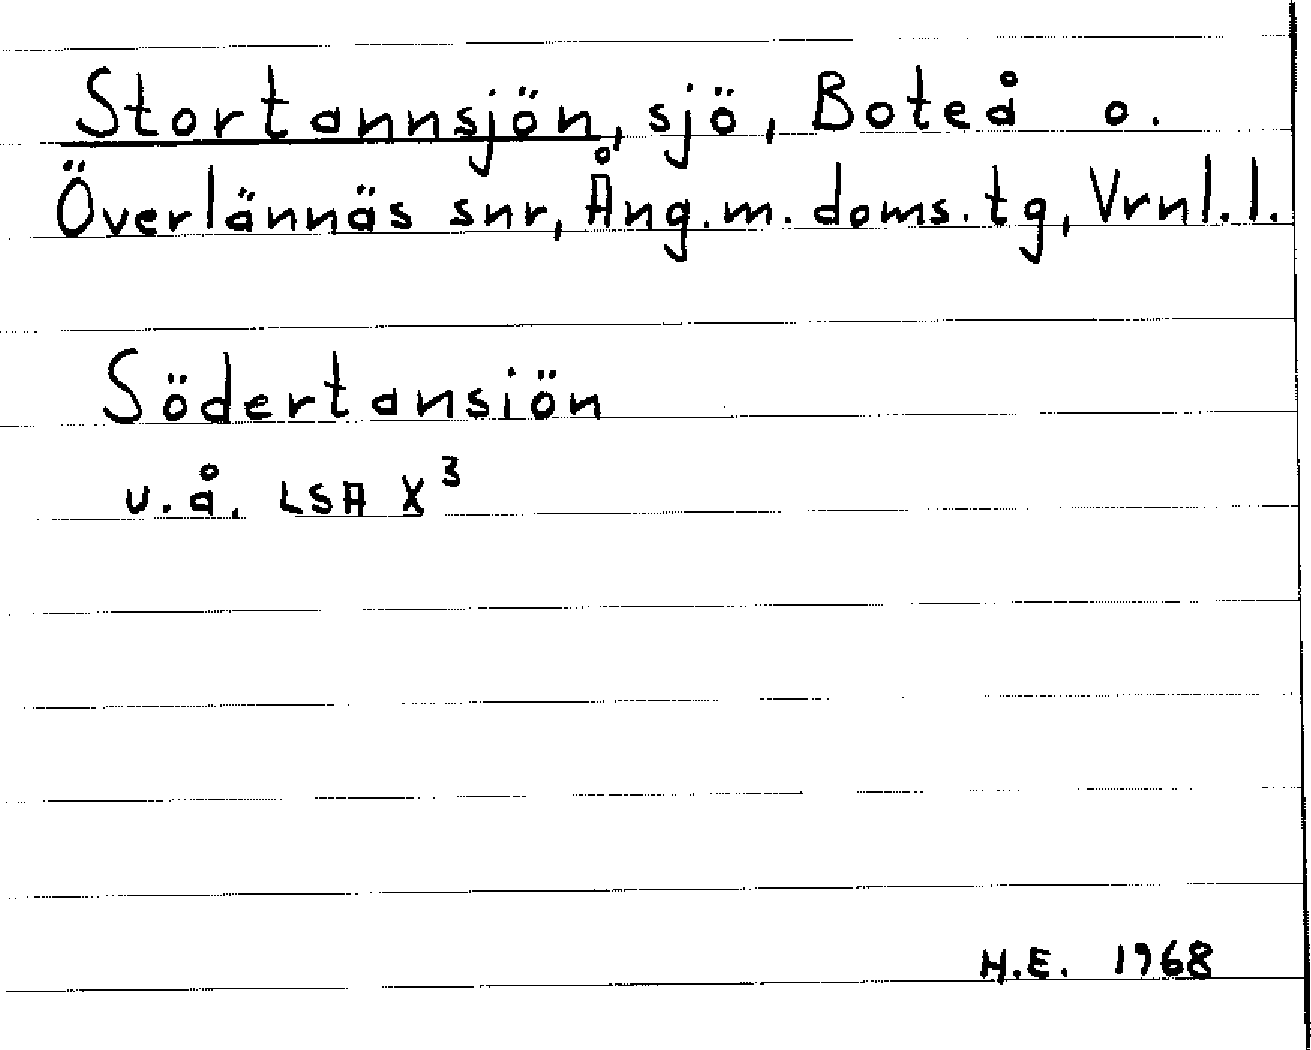 Stortannsjön, sjö, Boteå o.
Överlännäs snr, Ång.m. doms.tg, Vrnl.l.
Södertansiön
u.å. LSA X³
H.E. 1968